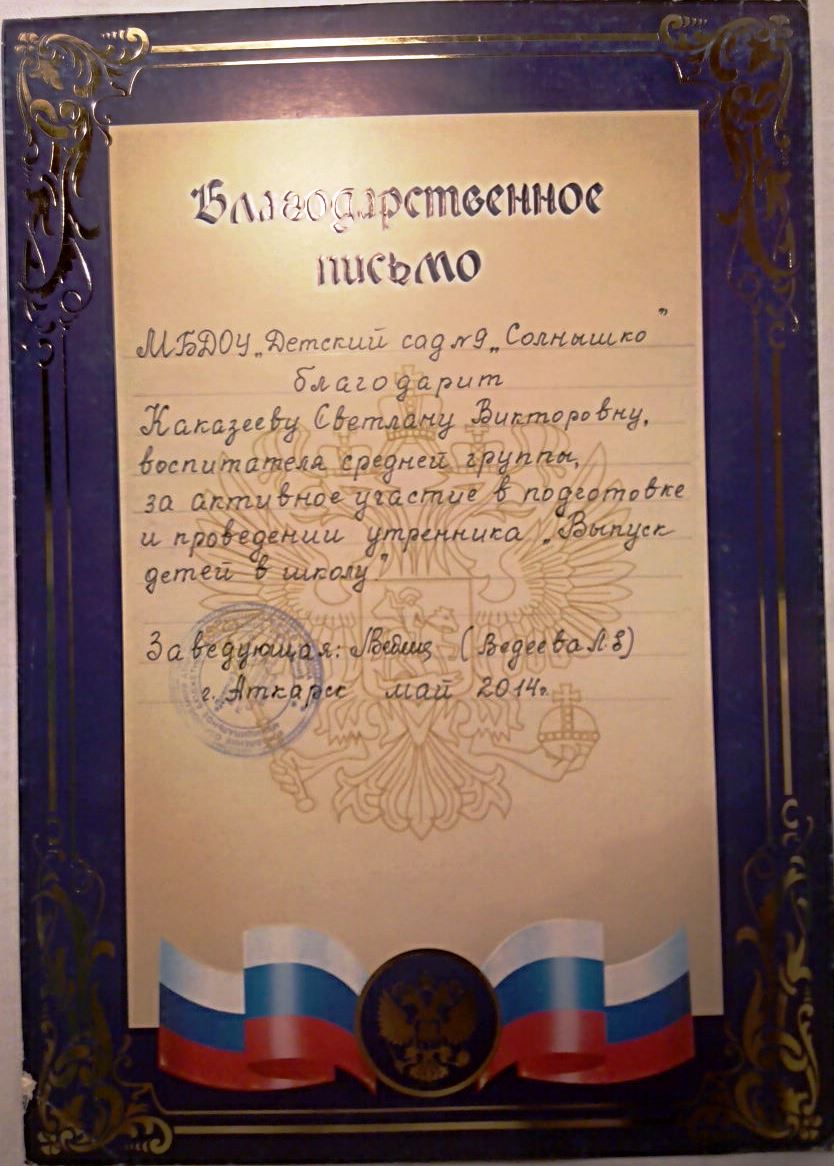 Благодарственное
письмо
МБДОУ „Детский сад №9 „Солнышко"
благодарит
Каказееву Светлану Викторовну,
воспитателя средней группы,
за активное участие в подготовке
и проведении утренника „Выпуск
детей в школу."
Заведующая: (Ведеева Л.Е)
г. Аткарск май 2014г.